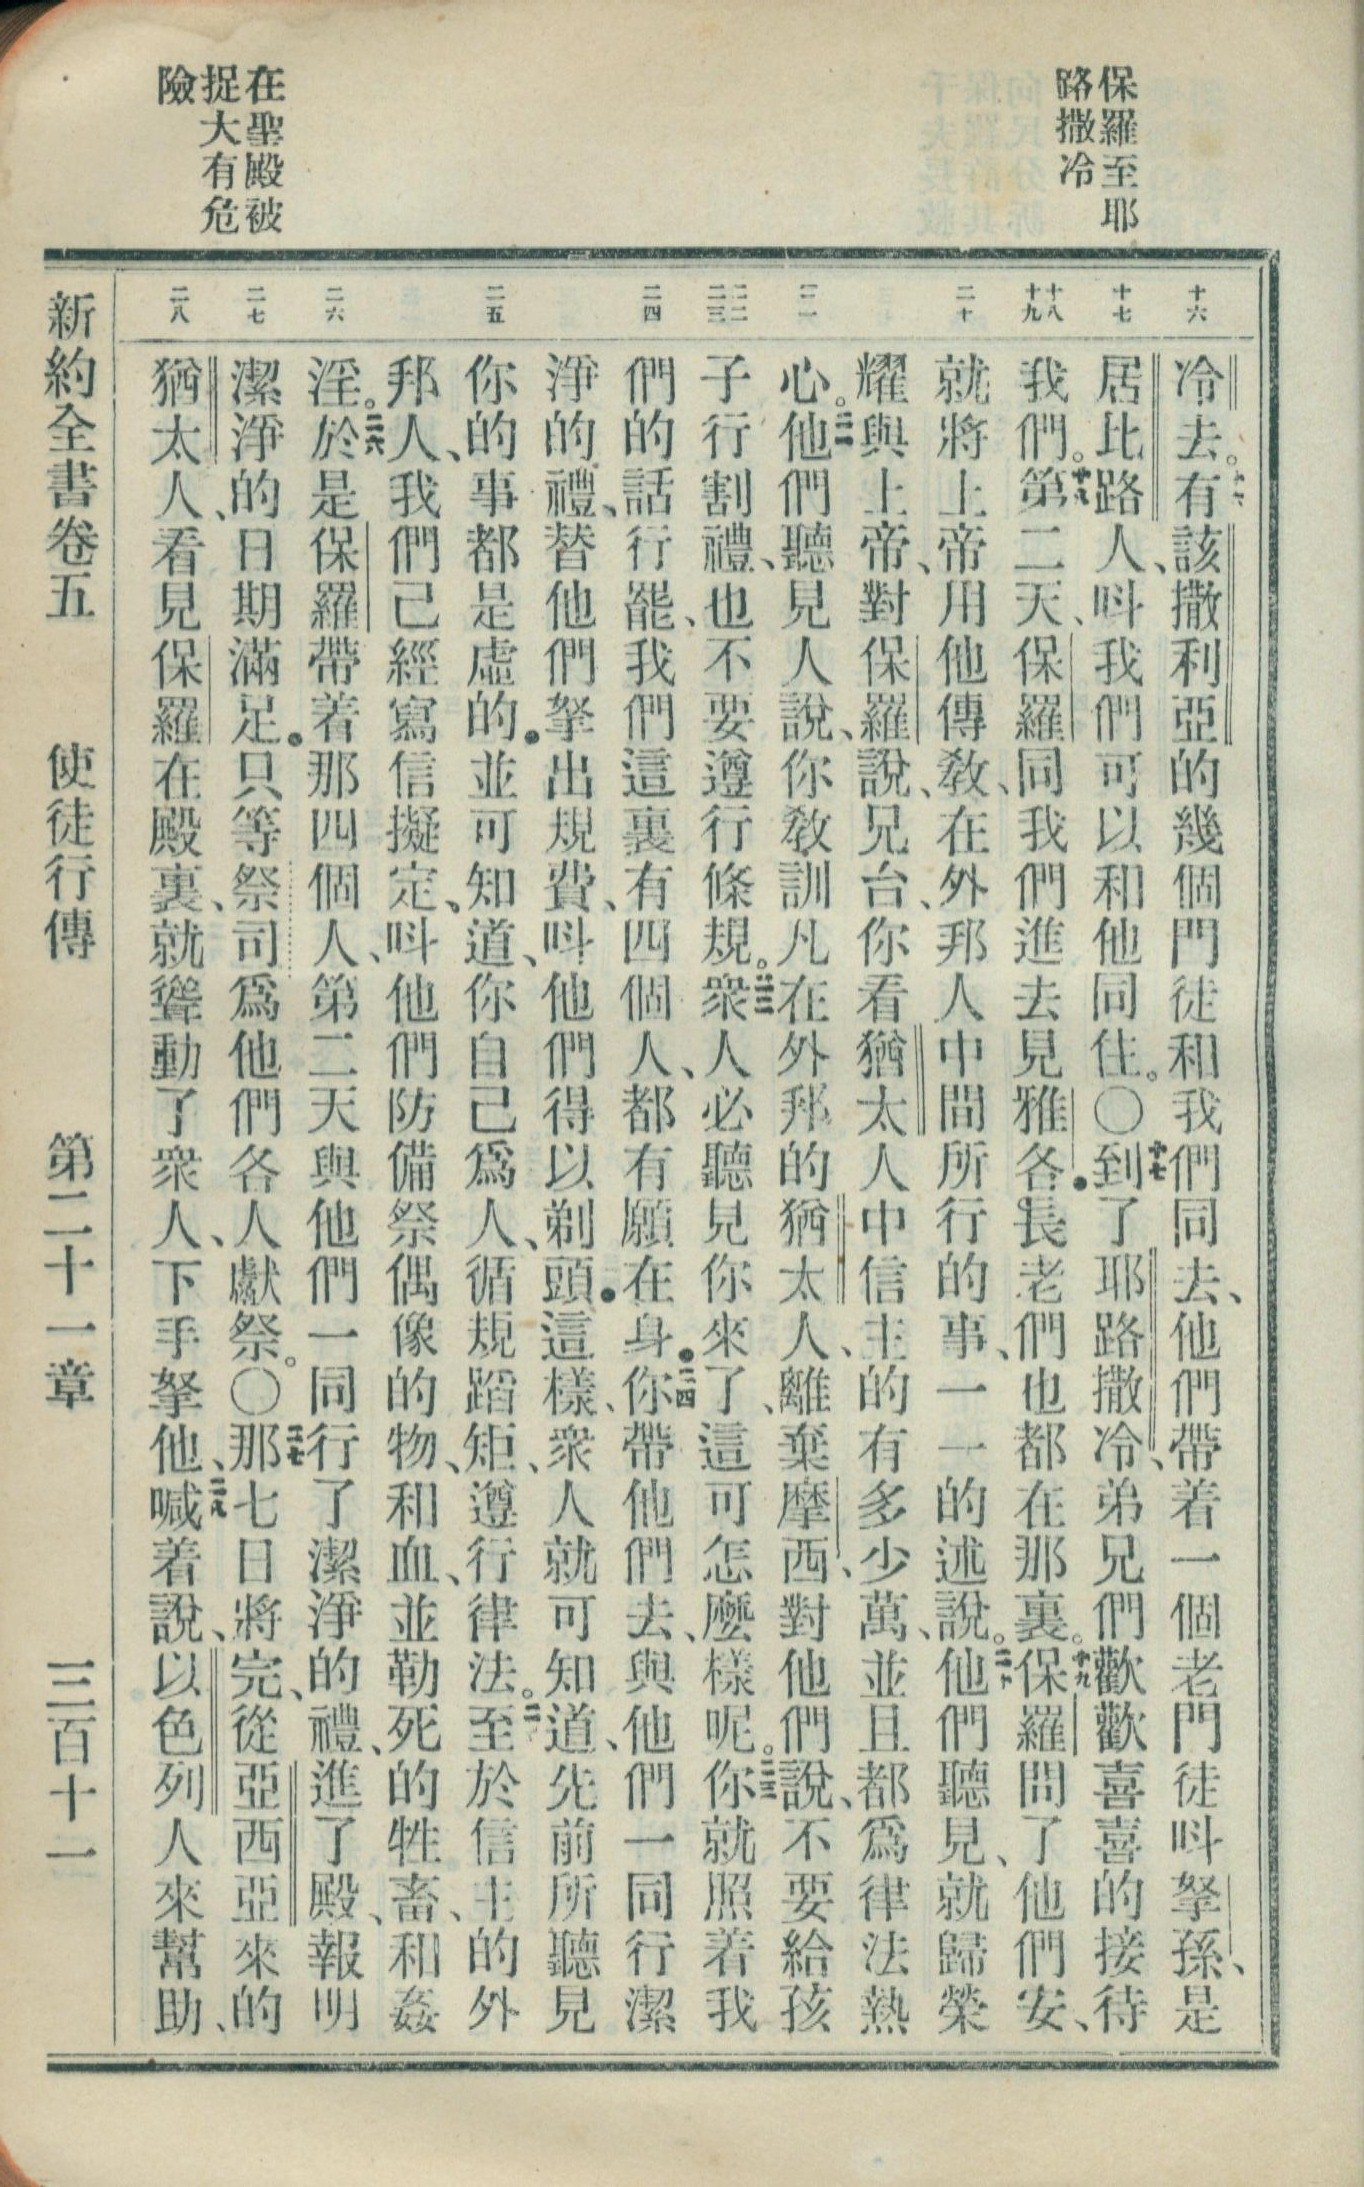 保羅至耶
路撒冷
在聖殿被
捉大有危
險
十六
十七
十八
十九
二十
二一
二二
二三
二四
二五
二六
二七
二八
冷去。十六有該撒利亞的幾個門徒和我們同去、他們帶着一個老門徒呌拏孫、是
居比路人、呌我們可以和他同住。〇十七到了耶路撒冷、弟兄們歡歡喜喜的接待
我們。十八第二天、保羅同我們進去見雅各●長老們也都在那裏。十九保羅問了他們安、
就將上帝用他傳教、在外邦人中間所行的事、一一的述說。二十他們聽見、就歸榮
耀與上帝、對保羅說、兄台、你看猶太人中信主的有多少萬、並且都爲律法熱
心。二一他們聽見人說、你教訓凡在外邦的猶太人、離棄摩西、對他們說、不要給孩
子行割禮、也不要遵行條規。二二衆人必聽見你來了、這可怎麼樣呢。二三你就照着我
們的話行罷、我們這裏有四個人、都有願在身●二四你帶他們去、與他們一同行潔
淨的禮、替他們拏出規費、呌他們得以剃頭●這樣、衆人就可知道、先前所聽見
你的事都是虛的●並可知道、你自己爲人、循規蹈矩、遵行律法。二五至於信主的外
邦人、我們已經寫信擬定、呌他們防備祭偶像的物、和血、並勒死的牲畜、和姦
淫。二六於是保羅帶着那四個人、第二天與他們一同行了潔淨的禮、進了殿、報明
潔淨的日期滿足●只等祭司爲他們各人獻祭。〇二七那七日將完、從亞西亞來的
猶太人、看見保羅在殿裏、就聳動了衆人、下手拏他、二八喊着說、以色列人來幫助、
新約全書卷五 使徒行傳 第二十一章 三百十一